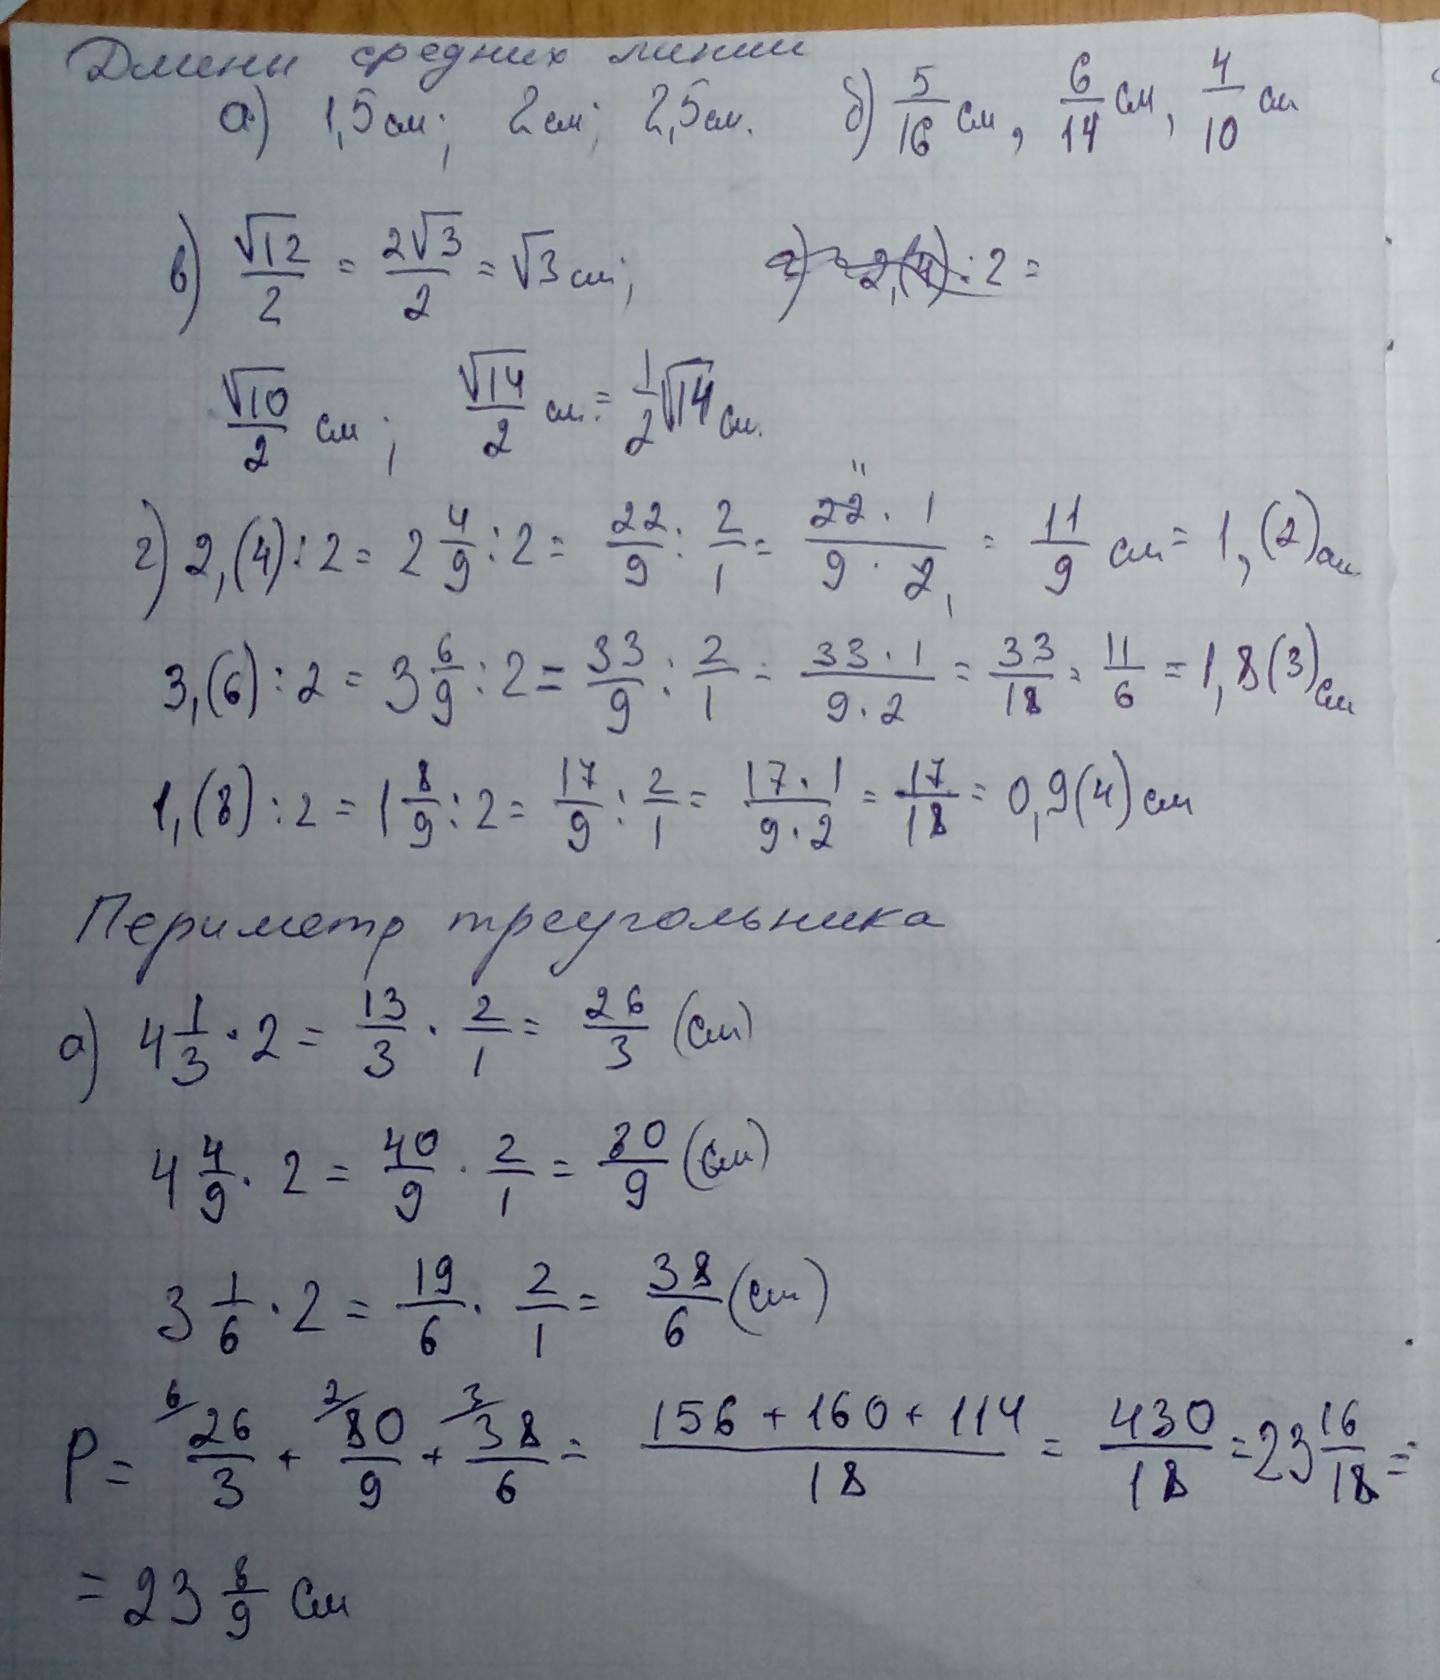 Длины средних линии
а) 1,5 см; 2 см; 2,5 см. б) 5/16 см, 6/14 см, 4/10 см
в) √12/2 = 2√3/2 = √3 см; г) 2,(4) : 2 =
√10/2 см; √14/2 см = 1/2 √14 см.
г) 2,(4) : 2 = 2 4/9 : 2 = 22/9 : 2/1 = 22 · 1/9 · 2 = 11/9 см = 1,(2) см
3,(6) : 2 = 3 6/9 : 2 = 33/9 : 2/1 = 33 · 1/9 · 2 = 33/18 = 11/6 = 1,8(3) см
1,(8) : 2 = 1 8/9 : 2 = 17/9 : 2/1 = 17 · 1/9 · 2 = 17/18 = 0,9(4) см
Периметр треугольника
а) 4 1/3 · 2 = 13/3 · 2/1 = 26/3 (см)
4 4/9 · 2 = 40/9 · 2/1 = 80/9 (см)
3 1/6 · 2 = 19/6 · 2/1 = 38/6 (см)
P = 6/ 26/3 + 2/ 80/9 + 3/ 38/6 = 156 + 160 + 114/18 = 430/18 = 23 16/18 =
= 23 8/9 см